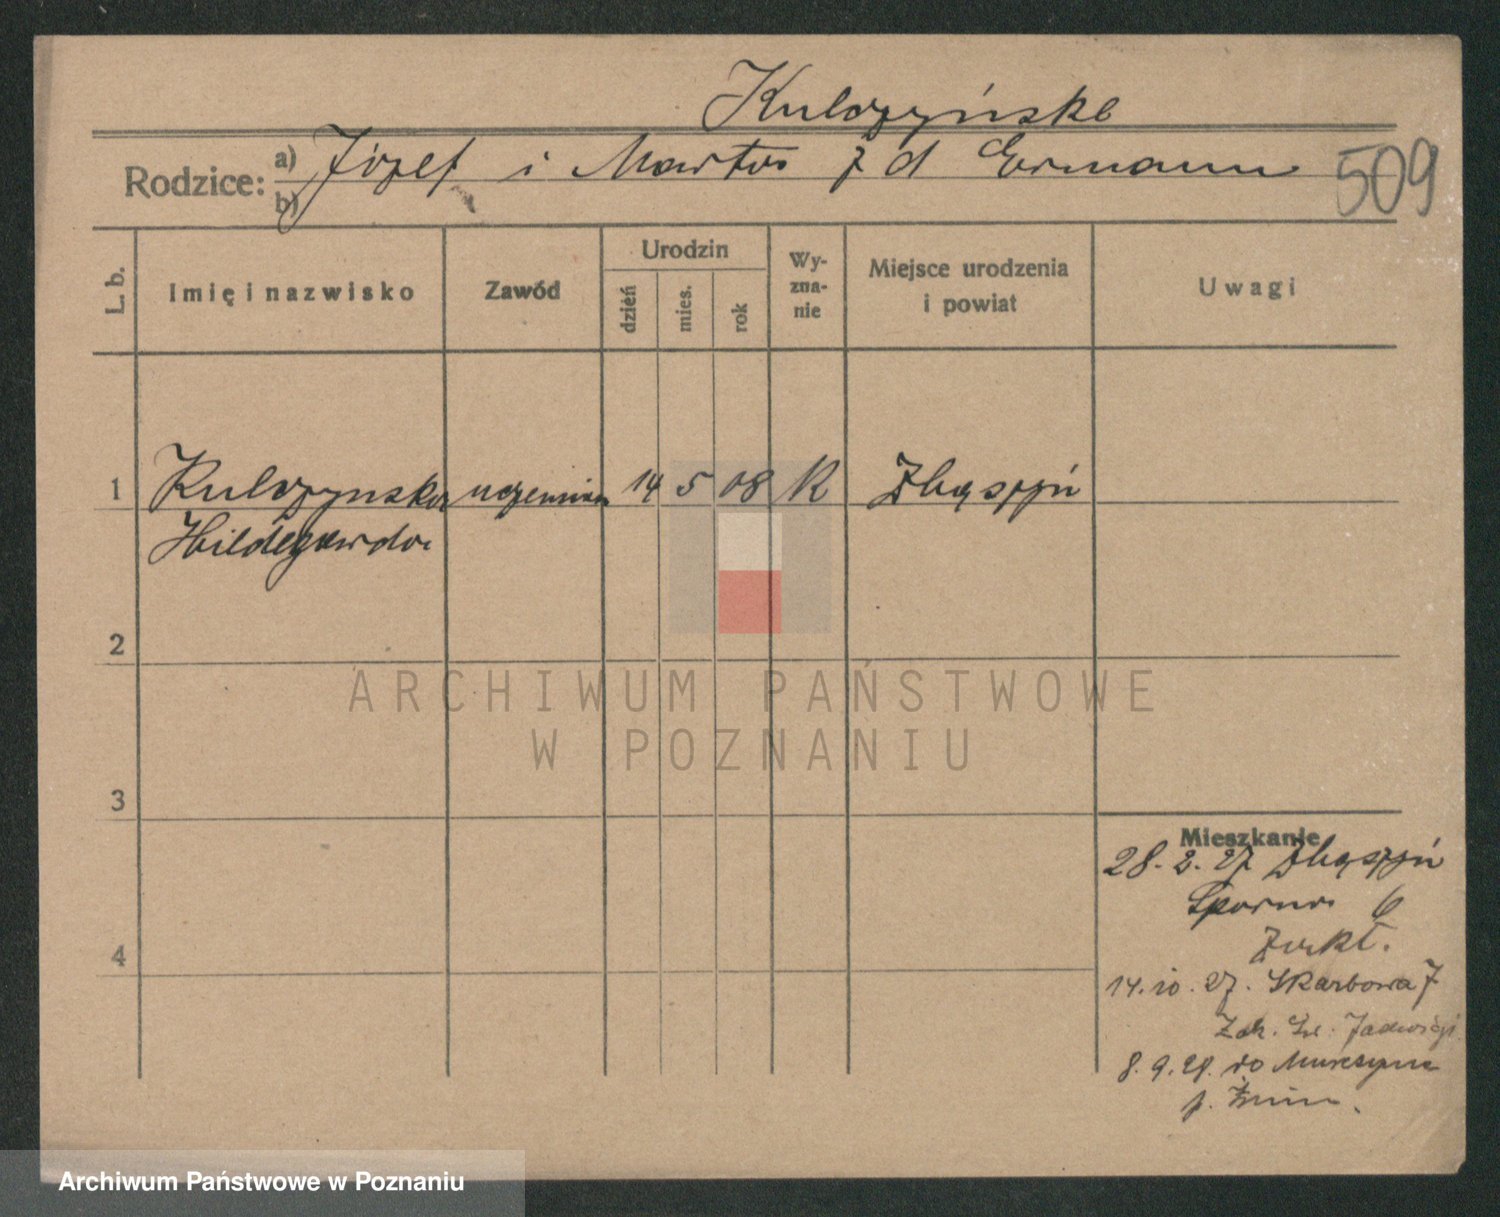 Kulczyński
Rodzice: a) Józef i Marta z d Ermann 509
b)
L. b. Imię i nazwisko Zawód Urodzin dzień mies. rok Wy-zna-nie Miejsce urodzenia i powiat Uwagi
1 Kulczynska uczennica 14 5 08 R Zbąszyń
Hildegarda
2
ARCHIWUM PAŃSTWOWE
W POZNANIU
3
Mieszkanie
28. 2. 27 Zbąszyń
6
4
14. 10. 27. Skarbowa 7
Zak. Św. Jadwigi
8. 9. 28. do
p. Żnin.
Archiwum Państwowe w Poznaniu